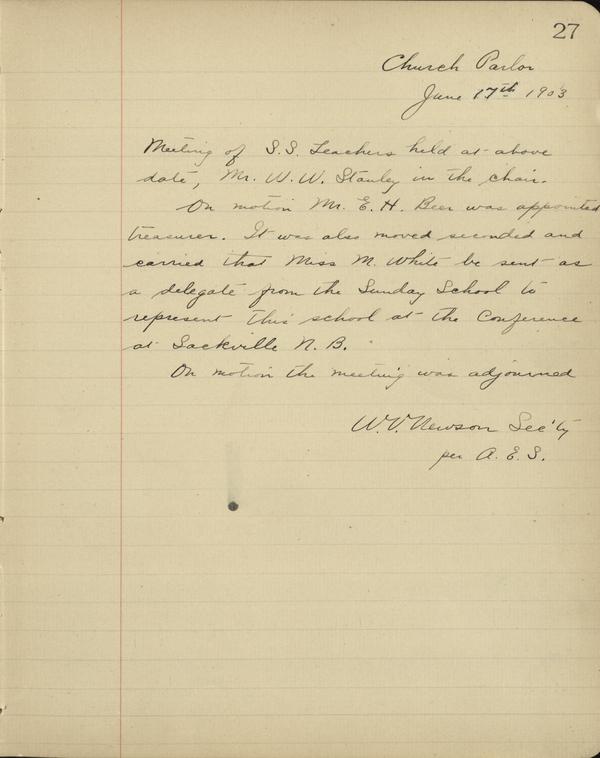 27
Church Parlor
June 17th 1903
Meeting of S.S. Teachers held at above
date, Mr. W. W. Stanley in the chair.
On motion Mr. E. H. Beer was appointed
treasurer. It was also moved seconded and
carried that Miss M. White be sent as
a delegate from the Sunday School to
represent this school at the Conference
at Sackville N. B.
On motion the meeting was adjourned
W. V. Newson Sec'ty
per A. E. S.